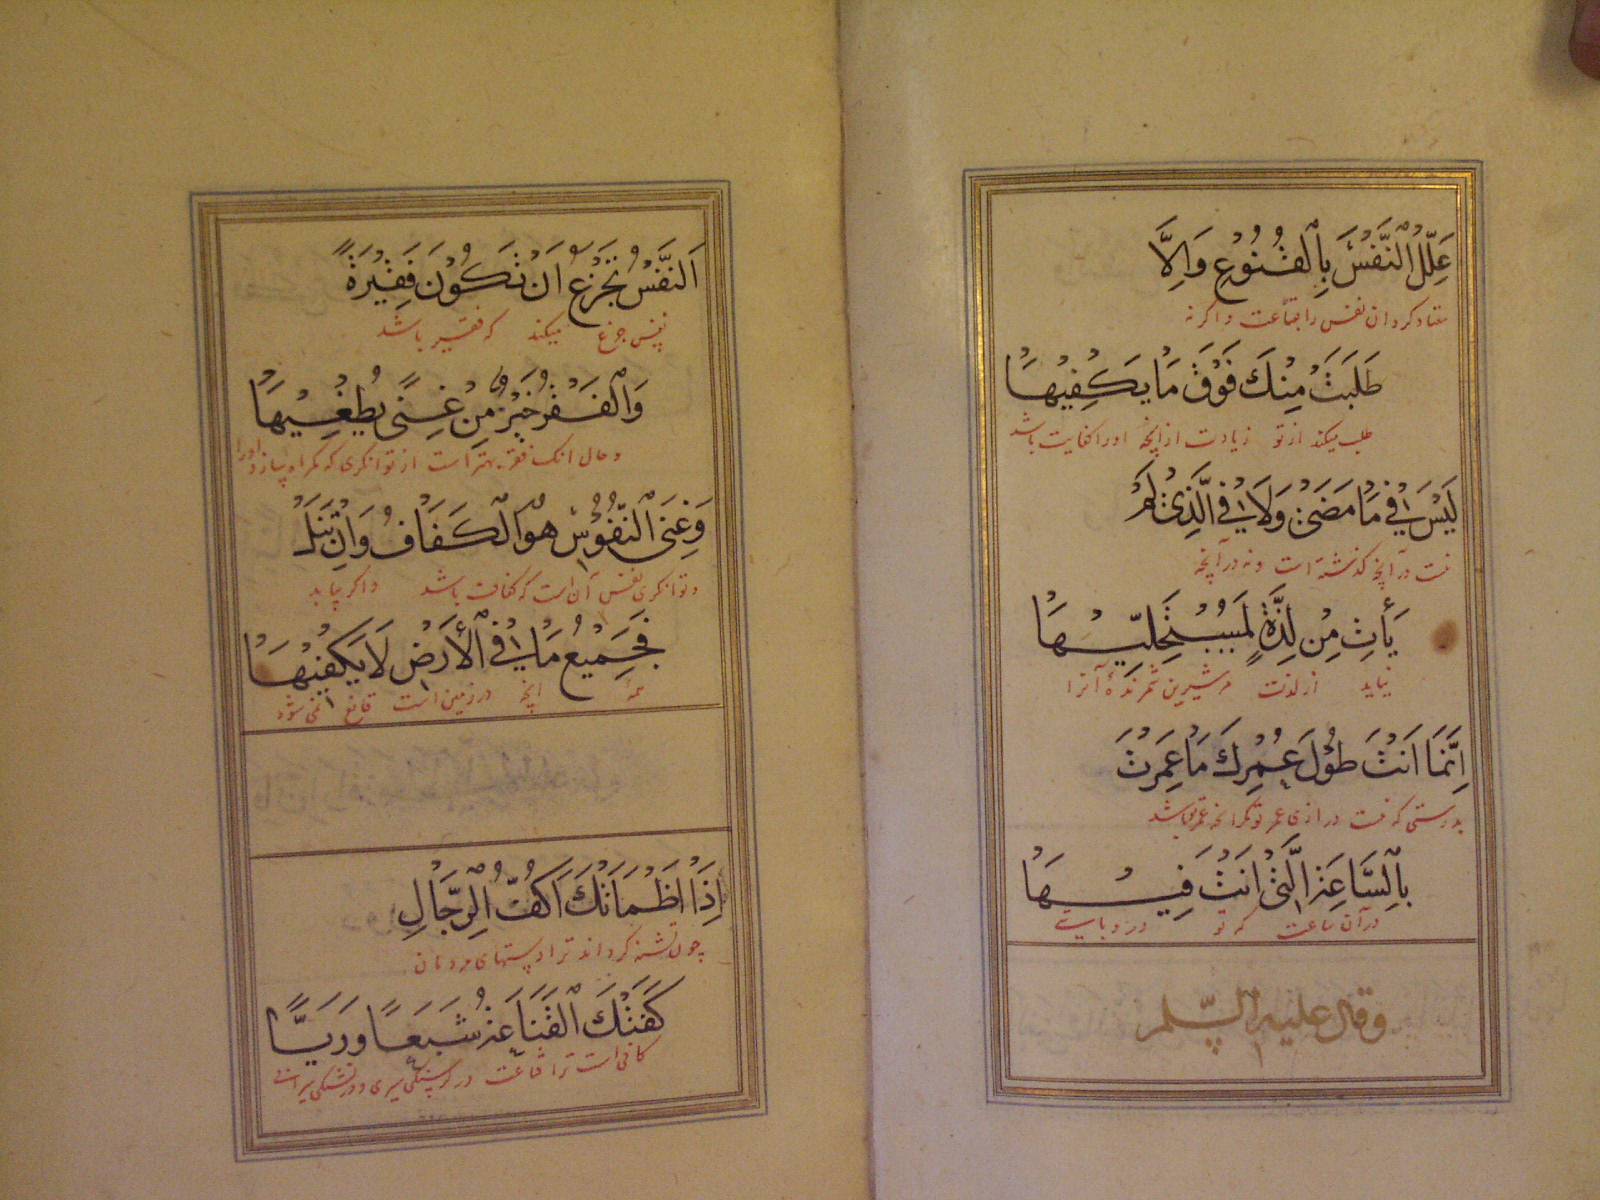 عَلِّلِ النَّفْسَ بِالْقُنُوعِ وَاِلَّا
معتاد کردان نفس را بقناعت و اکر نه
طَلَبَتْ مِنْكَ فَوْقَ مَا يَكْفِيْهَا
طلب میکند از تو زیادت از آنچه او را کفایت باشد
لَيْسَ فِيْ مَا مَضٰى وَلَا فِي الَّذِيْ لَمْ
نیست در آنچه کذشته است و نه در آنچه
يَأْتِ مِنْ لَذَّةٍ لِمُسْتَحْلِيْهَا
نیاید از لذت مر شیرین شمرندهٔ آنرا
اِنَّمَا اَنْتَ طُوْلَ عُمْرِكَ مَا عُمِّرْتَ
بدرستی که نیست درازی عمر تو مکر آنچه عمر تو باشد
بِالسَّاعَةِ الَّتِيْ اَنْتَ فِيْهَا
در آن ساعت که تو درو
وقال عليه السّلم
اَلنَّفْسُ تَجْزَعُ اَنْ تَكُوْنَ فَقِيْرَةً
نفس جزع میکند که فقیر باشد
وَالْفَقْرُ خَيْرٌ مِنْ غِنًى يُطْغِيْهَا
و حال آنک فقر بهتر است از توانکری که کمراه سازد او را
وَغِنَى النُّفُوْسِ هُوَ الْكَفَافُ وَاِنْ تَنَلْ
و توانکری نفس آن است که کفاف باشد و اکر بیابد
فَجَمِيْعُ مَا فِي الْأَرْضِ لَا يَكْفِيْهَا
همهٔ آنچه در زمین است قانع نمی شود
اِذَا اَظْمَأَتْكَ اَكُفُّ الرِّجَالِ
چون تشنه کرداند ترا دستهای مردمان
كَفَتْكَ الْقَنَاعَةُ شَبَعًا وَرِيًّا
کافی است ترا قناعت در کرسنکی سیری و در تشنکی سیرابی